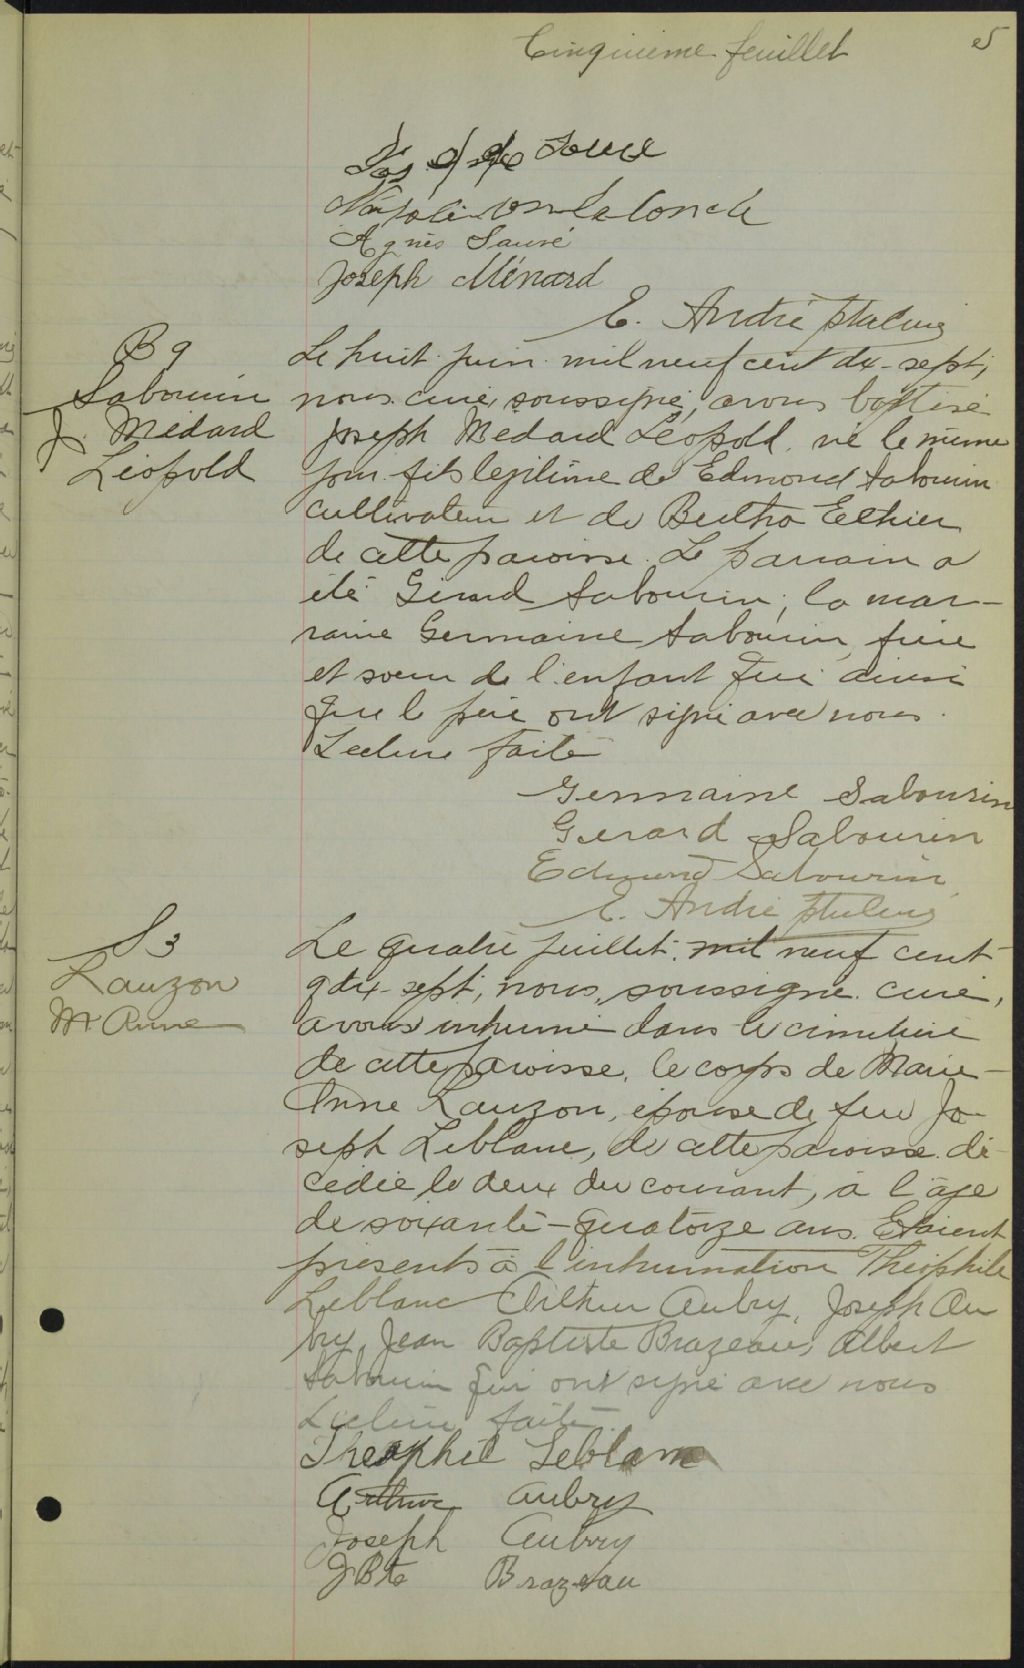 Cinquième feuillet
5
Napoléon Lalonde
Agnès Sauvé
Joseph Ménard
E. André ptre curé
B 9
Sabourin
J. Médard
Léopold
Le huit juin mil neuf cent dix-sept,
nous curé, soussigné, avons baptisé
Joseph Medard Léopold, né le même
jour fils légitime de Edmond Sabourin
cultivateur et de Bertha Ethier
de cette paroisse. Le parrain a
été Gérard Sabourin; la mar-
raine Germaine Sabourin, frère
et soeur de l'enfant qui ainsi
que le père ont signé avec nous.
Lecture faite
Germaine Sabourin
Gerard Sabourin
Edmond Sabourin
E. André ptre curé
S 3
Lauzon
M. Anne
Le quatre juillet mil neuf cent
dix-sept, nous, soussigné curé,
avons inhumé dans le cimetière
de cette paroisse, le corps de Marie-
Anne Lauzon, épouse de feu Jo-
seph Leblanc, de cette paroisse dé-
cédée le deux du courant, à l'âge
de soixante-quatorze ans. Etaient
présents à l'inhumation Théophile
Leblanc Arthur Aubry, Joseph Au
bry, Jean Baptiste Brazeau, Albert
Sabourin qui ont signé avec nous
Lecture faite.
Theophil Leblanc
Arthur Aubry
Joseph Aubry
J Bte Brazeau